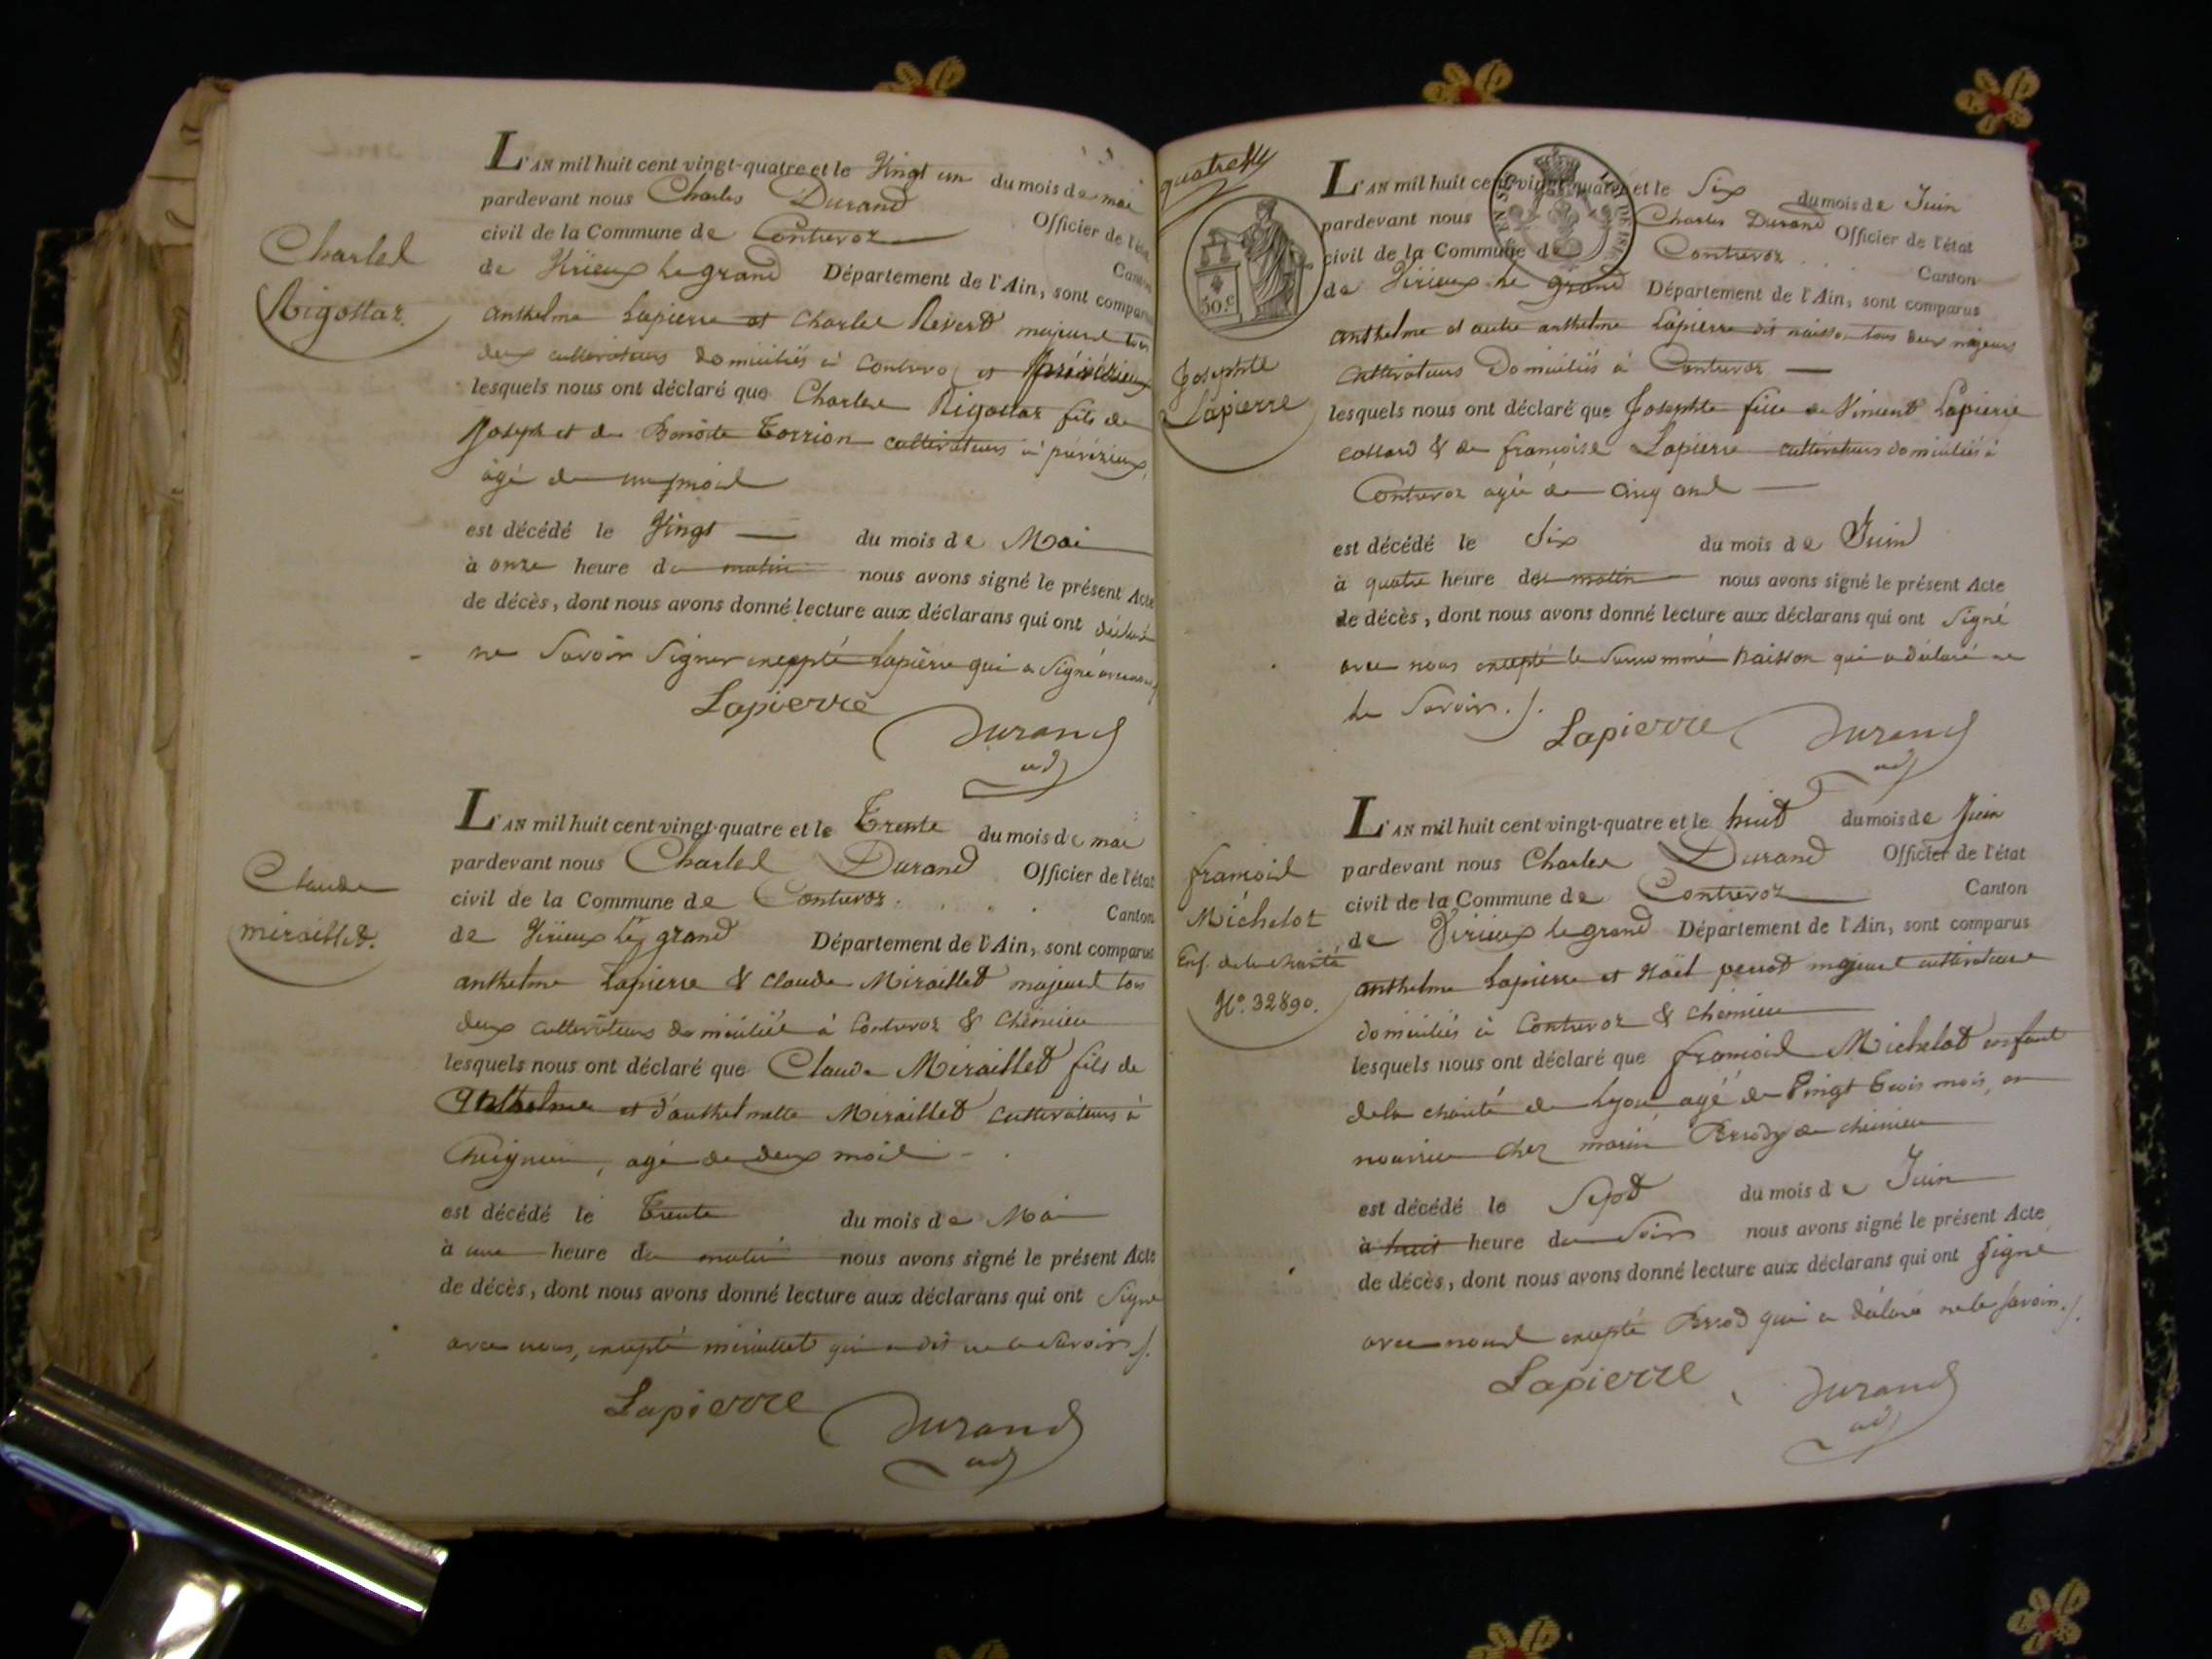 Charles
Rigottaz.
L'AN mil huit cent vingt-quatre et le Vingt un du mois de mai
pardevant nous Charles Durand Officier de l'état
civil de la Commune de Contrevoz Canton
de Virieux le grand Département de l'Ain, sont comparus
anthelme Lapierre et Charles Revert majeurs tous
deux cultivateurs domiciliés à Contrevoz et préveizieux
lesquels nous ont déclaré que Charles Rigottaz fils de
Joseph et de Benoite Torrion cultivateurs à
agé de un mois
est décédé le Vingt du mois de Mai
à onze heure du matin nous avons signé le présent Acte
de décès, dont nous avons donné lecture aux déclarans qui ont déclaré
ne Savoir Signer excepté Lapierre qui a Signé avec nous
Lapierre Durand
adj
Claude
miraillet.
L'AN mil huit cent vingt-quatre et le Trente du mois de mai
pardevant nous Charles Durand Officier de l'état
civil de la Commune de Contrevoz Canton
de Virieux le grand Département de l'Ain, sont comparus
anthelme Lapierre & Claude Miraillet majeurs tous
deux cultivateurs domiciliés à Contrevoz & Chemieu
lesquels nous ont déclaré que Claude Miraillet fils de
anthelme et d'anthelmette Miraillet cultivateurs à
Cheignieu, agé de deux mois
est décédé le Trente du mois de Mai
à une heure du matin nous avons signé le présent Acte
de décès, dont nous avons donné lecture aux déclarans qui ont Signé
avec nous, excepté miraillet qui a dit ne le Savoir ./.
Lapierre Durand
adj
50.c
Josephte
Lapierre
L'AN mil huit cent vingt-quatre et le Six du mois de Juin
pardevant nous Charles Durand Officier de l'état
civil de la Commune de Contrevoz Canton
de Virieux le grand Département de l'Ain, sont comparus
anthelme et autre anthelme Lapierre dit naisson tous deux majeurs
cultivateurs Domiciliés à Contrevoz
lesquels nous ont déclaré que Josephte fille de Vincent Lapierre
collard & de françoise Lapierre cultivateurs domiciliés à
Contrevoz agée de cinq ans
est décédé le Six du mois de Juin
à quatre heure du matin nous avons signé le présent Acte
de décès, dont nous avons donné lecture aux déclarans qui ont Signé
avec nous excepté le Surnommé naisson qui a déclaré ne
le Savoir. /.
Lapierre Durand
adj
françois
Michelot
Enf. de la charité
N.o 32890.
L'AN mil huit cent vingt-quatre et le huit du mois de Juin
pardevant nous Charles Durand Officier de l'état
civil de la Commune de Contrevoz Canton
de Virieux le grand Département de l'Ain, sont comparus
anthelme Lapierre et Noël perrod majeurs cultivateurs
domiciliés à Contrevoz & Chemieu
lesquels nous ont déclaré que françois Michelot enfant
de la charité de Lyon agé de Vingt trois mois, en
nourrice chez marie Perrod de cheinieu
est décédé le Sept du mois de Juin
à huit heure du Soir nous avons signé le présent Acte
de décès, dont nous avons donné lecture aux déclarans qui ont Signé
avec nous excepté Perrod qui a déclaré ne le Savoir. /.
Lapierre Durand
adj